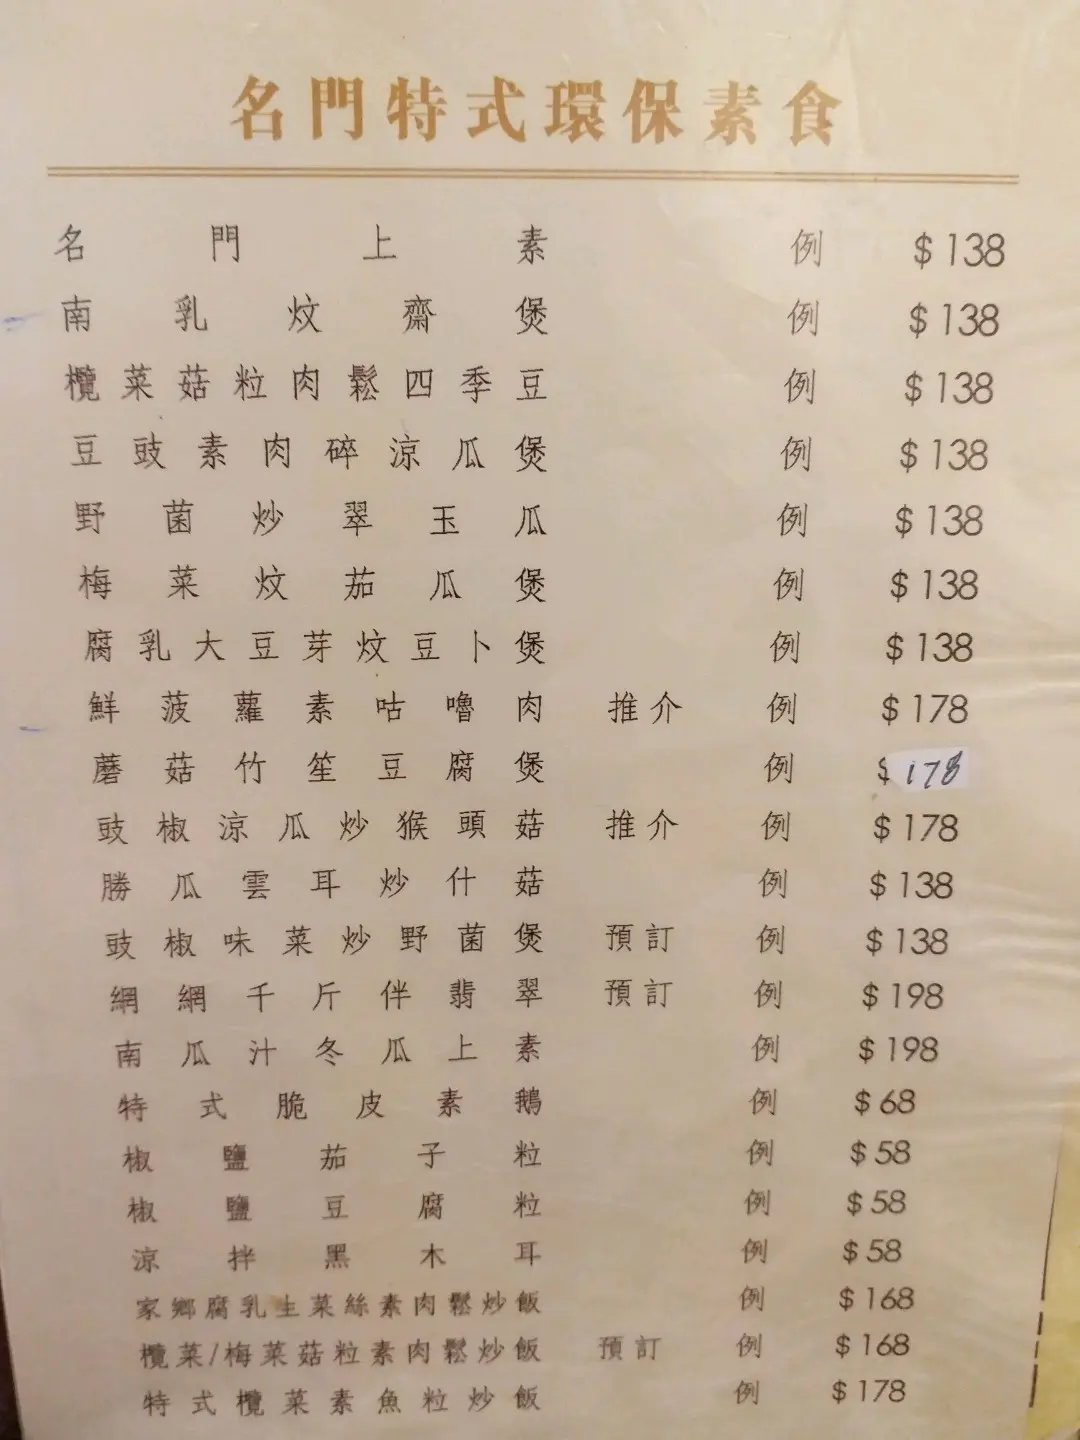 名門特式環保素食
名門上素 例 $138
南乳炆齋煲 例 $138
欖菜菇粒肉鬆四季豆 例 $138
豆豉素肉碎涼瓜煲 例 $138
野菌炒翠玉瓜 例 $138
梅菜炆茄瓜煲 例 $138
腐乳大豆芽炆豆卜煲 例 $138
鮮菠蘿素咕嚕肉 推介 例 $178
蘑菇竹笙豆腐煲 例 $178
豉椒涼瓜炒猴頭菇 推介 例 $178
勝瓜雲耳炒什菇 例 $138
豉椒味菜炒野菌煲 預訂 例 $138
網網千斤伴翡翠 預訂 例 $198
南瓜汁冬瓜上素 例 $198
特式脆皮素鵝 例 $68
椒鹽茄子粒 例 $58
椒鹽豆腐粒 例 $58
涼拌黑木耳 例 $58
家鄉腐乳生菜絲素肉鬆炒飯 例 $168
欖菜/梅菜菇粒素肉鬆炒飯 預訂 例 $168
特式欖菜素魚粒炒飯 例 $178